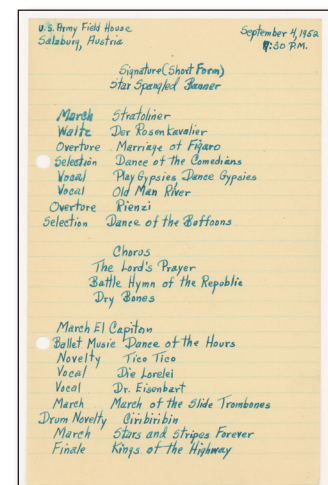 U.S. Army Field House
Salzburg, Austria
September 4, 1952
8:30 P.M.
Signature (Short Form)
Star Spangled Banner
March Stratoliner
Waltz Der Rosenkavalier
Overture Marriage of Figaro
Selection Dance of the Comedians
Vocal Play Gypsies Dance Gypsies
Vocal Old Man River
Overture Rienzi
Selection Dance of the Buffoons
Chorus
The Lord's Prayer
Battle Hymn of the Republic
Dry Bones
March El Capitan
Ballet Music Dance of the Hours
Novelty Tico Tico
Vocal Die Lorelei
Vocal Dr. Eisenbart
March March of the Slide Trombones
Drum Novelty Ciribiribin
March Stars and Stripes Forever
Finale Kings of the Highway